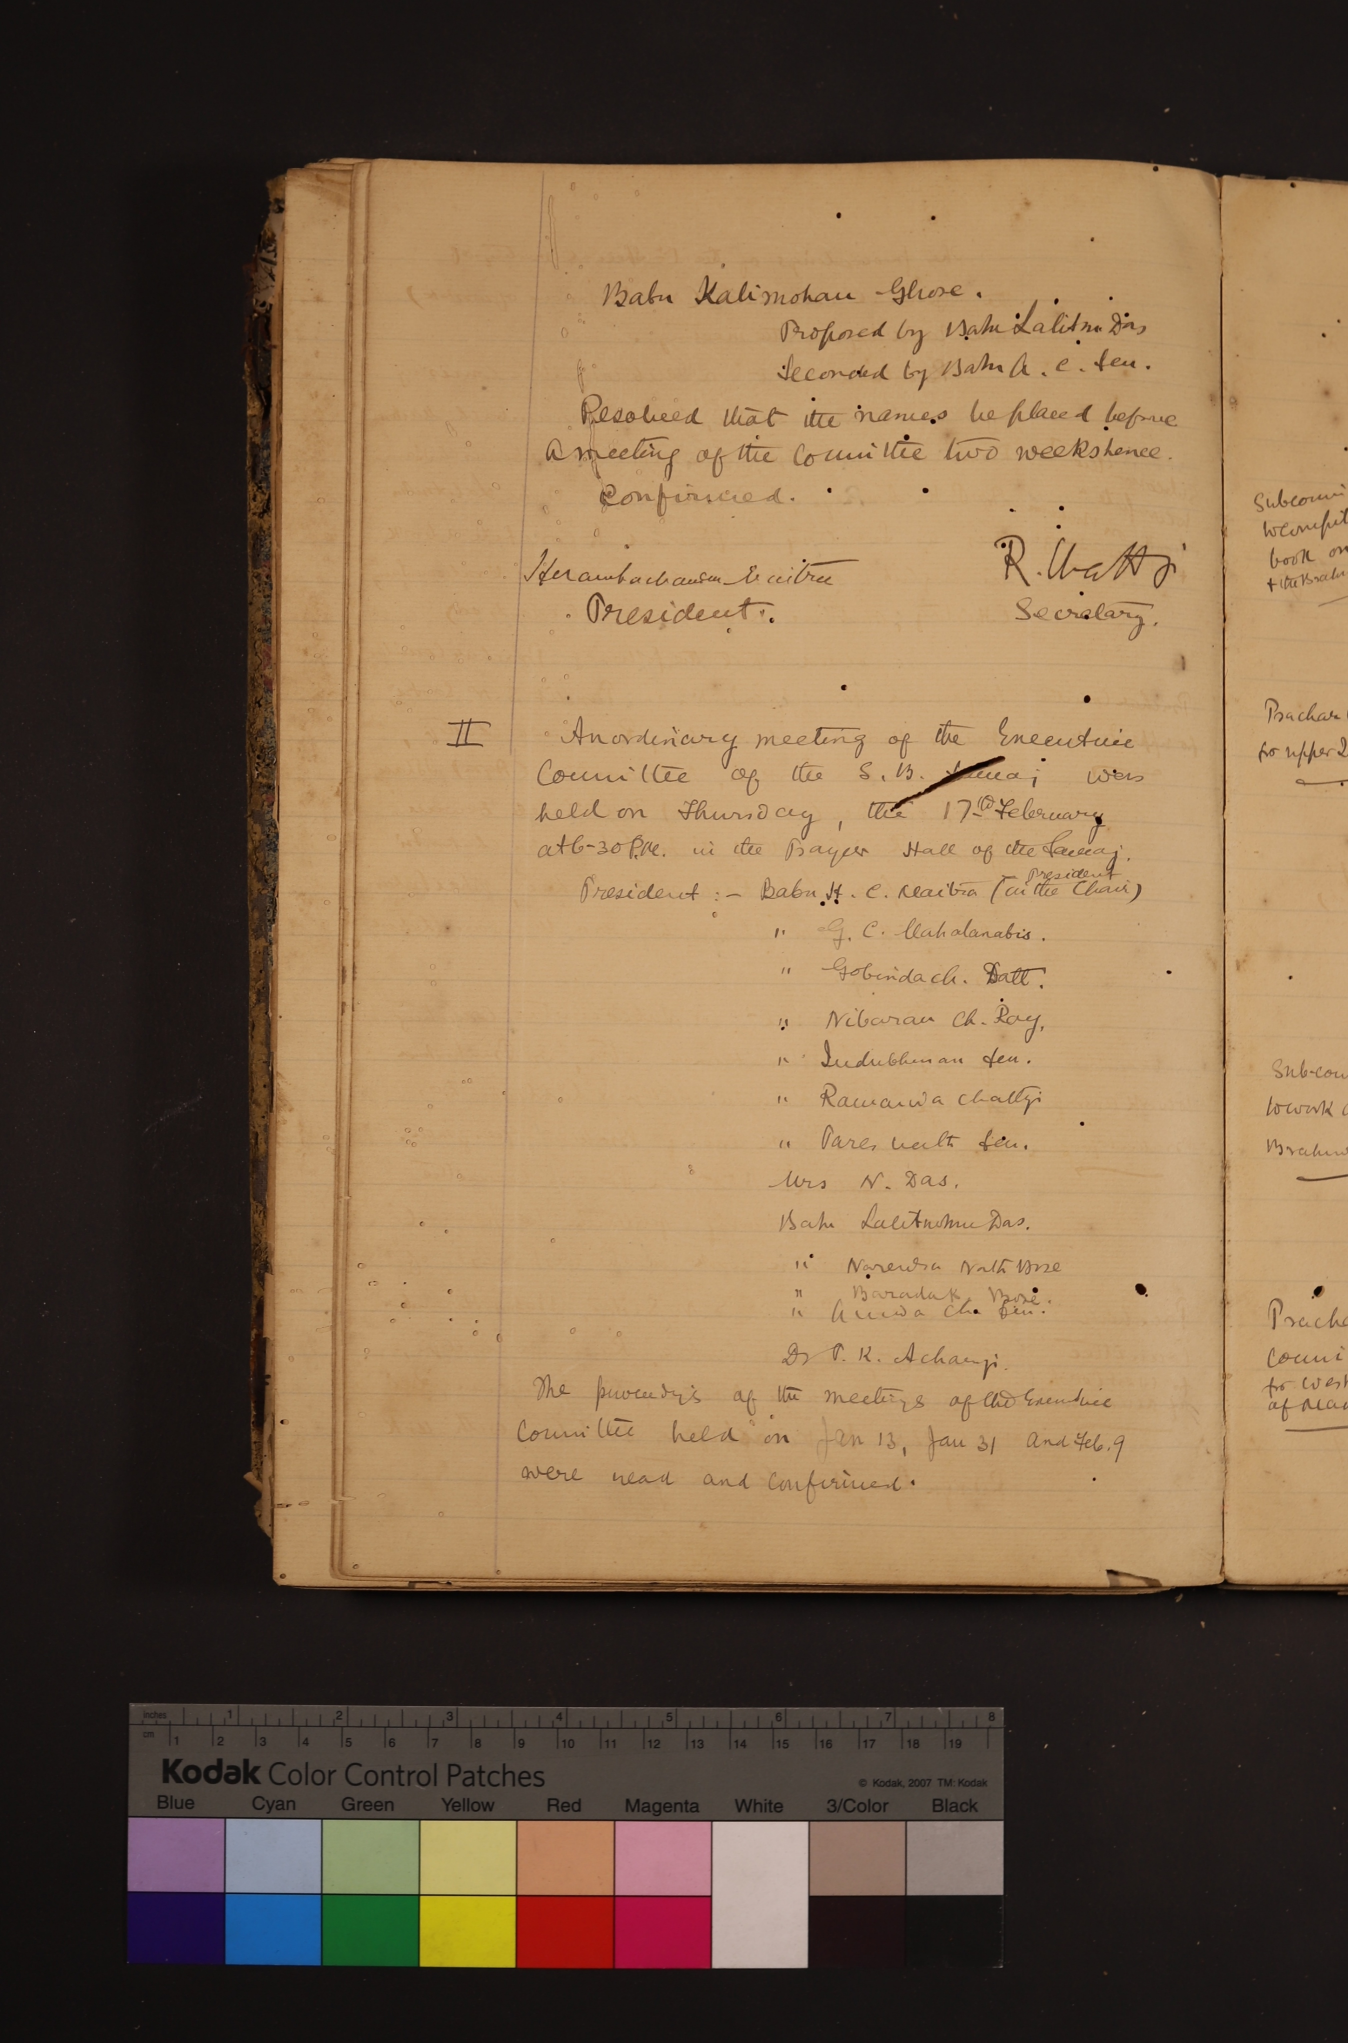 Babu Kalimohan Ghose.
Proposed by Babu Lalitmn Das
Seconded by Babu A. C. Sen.
Resolved that the names be placed before
a meeting of the Committee two weeks hence.
Confirmed.
Herambachandra Maitra
President.
R. Chattji
Secretary.
II
An ordinary meeting of the Executive
Committee of the S. B. Samaj was
held on Thursday, the 17th February
at 6-30 P.M. in the Prayer Hall of the Samaj.
president
President :- Babu H. C. Maitra (in the Chair)
" G. C. Mahalanabis.
" Gobinda Ch. Datt.
" Nibaran Ch. Roy,
" Indubhusan Sen.
" Ramanda Chattji
" Pares nath Sen.
Mrs N. Das.
Babu Lalitmohn Das.
" Narendra Nath Bose
" Barada K. Bose.
" Annada Ch. Sen.
Dr P. K. Acharji.
The procendgs of the meetings of the Executive
Committee held on Jan 13, Jan 31 and Feb. 9
were read and confirmed.
Subcommi
to compil
book on
+ the Brahm
Prachar
for upper
Sub-com
to work
Brahm
Pracha
Commi
for West
of
inches 1 2 3 4 5 6 7 8
cm 1 2 3 4 5 6 7 8 9 10 11 12 13 14 15 16 17 18 19
Kodak Color Control Patches
© Kodak, 2007 TM: Kodak
Blue Cyan Green Yellow Red Magenta White 3/Color Black